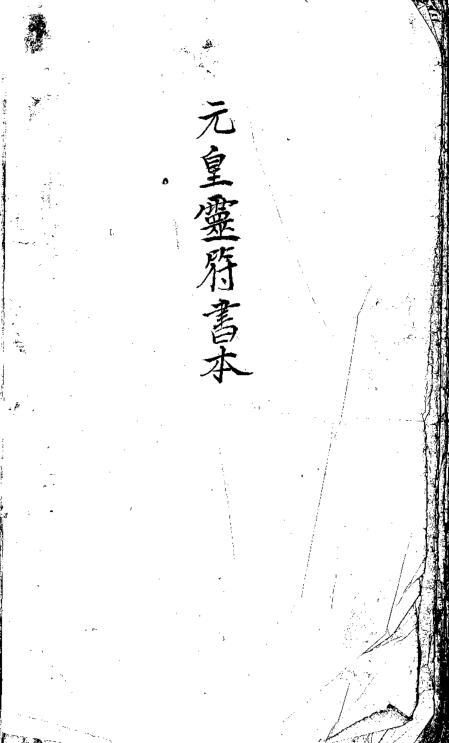 元皇靈符書本